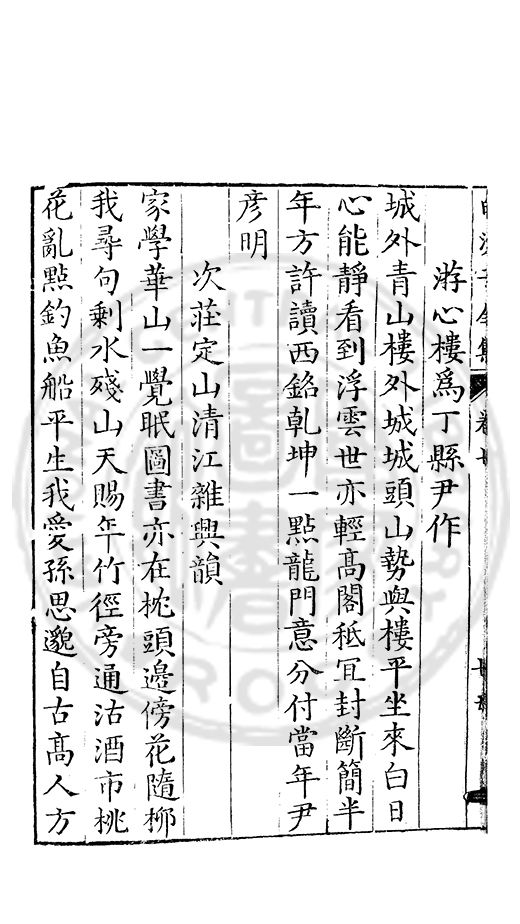 游心樓爲丁縣尹作
城外青山樓外城城頭山勢與樓平坐來白日
心能靜看到浮雲世亦輕高閣秪冝封斷簡半
年方許讀西銘乾坤一點龍門意分付當年尹
彦明
次莊定山清江雜興韻
家學華山一覺眠圖書亦在枕頭邊傍花隨柳
我尋句剩水殘山天賜年竹徑旁通沽酒市桃
花亂點釣魚船平生我愛孫思邈自古高人方